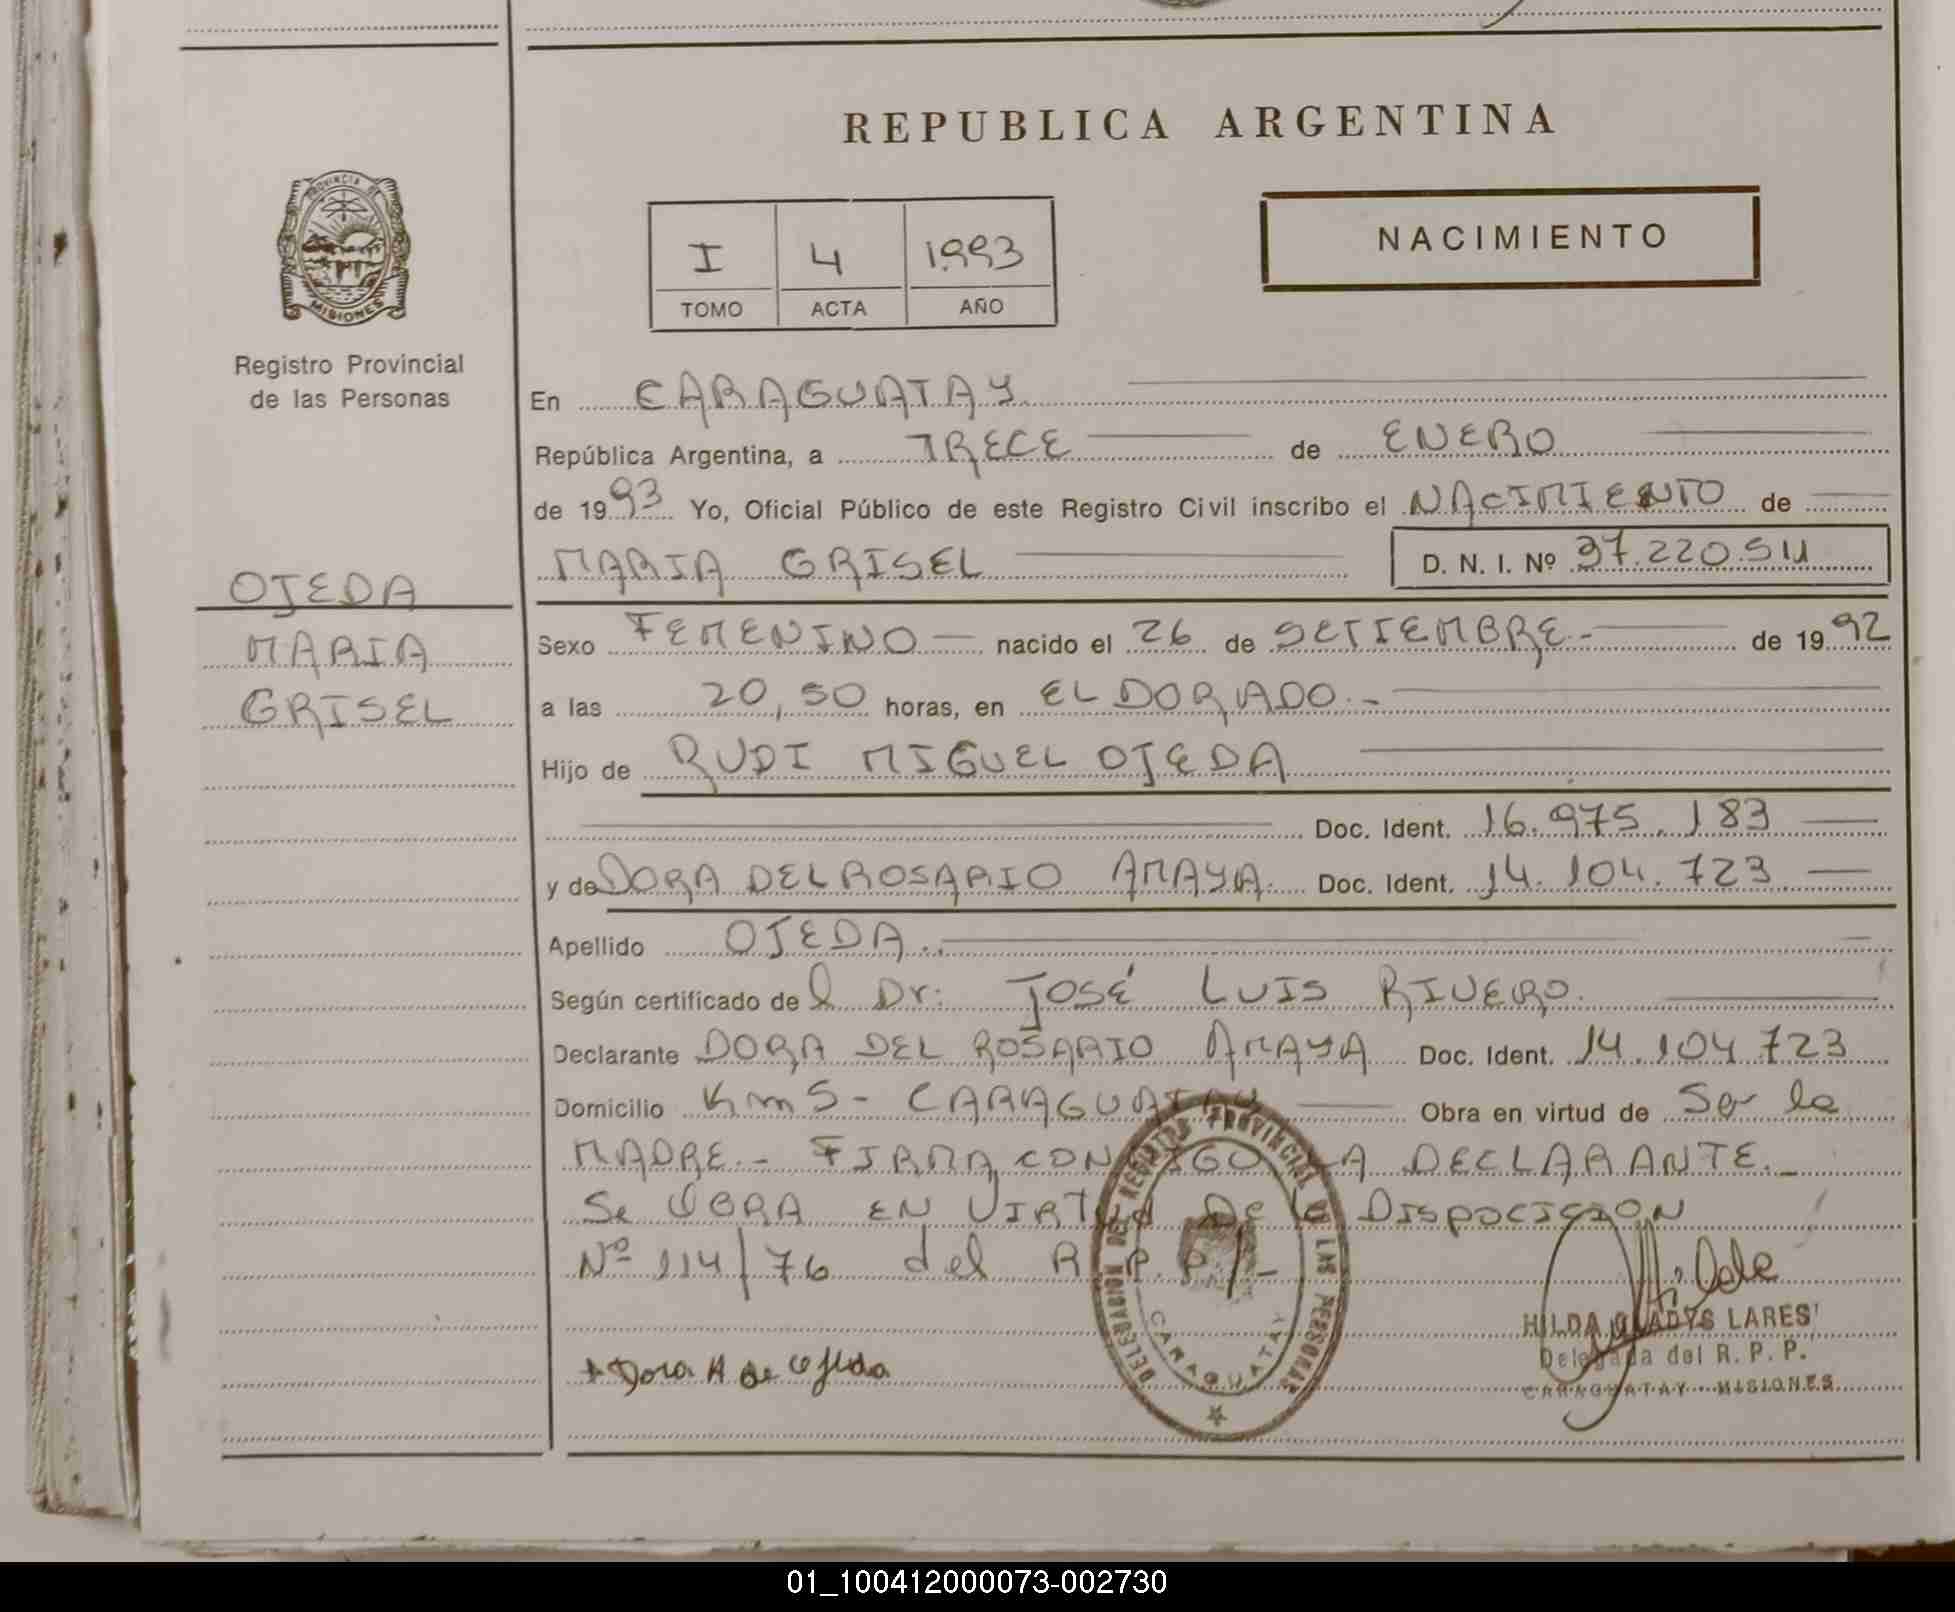 REPUBLICA ARGENTINA
PROVINCIA DE
MISIONES
Registro Provincial
de las Personas
I 4 1993
TOMO ACTA AÑO
NACIMIENTO
En CARAGUATAY
República Argentina, a TRECE de ENERO
de 1993 Yo, Oficial Público de este Registro Civil inscribo el NACIMIENTO de
MARIA GRISEL D. N. I. Nº 37.220.511
OJEDA
MARIA
GRISEL
Sexo FEMENINO — nacido el 26 de SETIEMBRE.- de 1992
a las 20,50 horas, en EL DORADO.-
Hijo de RUDI MIGUEL OJEDA
Doc. Ident. 16.975.183
y de DORA DEL ROSARIO AMAYA. Doc. Ident. 14.104.723
Apellido OJEDA.
Según certificado de l Dr: JOSÉ LUIS RIVERO.
Declarante DORA DEL ROSARIO AMAYA Doc. Ident. 14.104.723
Domicilio Km 5- CARAGUATAY Obra en virtud de Ser la
MADRE.- FIRMA CONMIGO LA DECLARANTE.-
Se OBRA EN VIRTud De la DISPOCICION
Nº 114/76 del R.P.P/-
DELEGACION DE REGISTRO PROVINCIAL DE LAS PERSONAS
CARAGUATAY
+ Dora A de Ojeda
Hilda
HILDA GLADYS LARES
Delegada del R. P. P.
CARAGUATAY - MISIONES
01_100412000073-002730